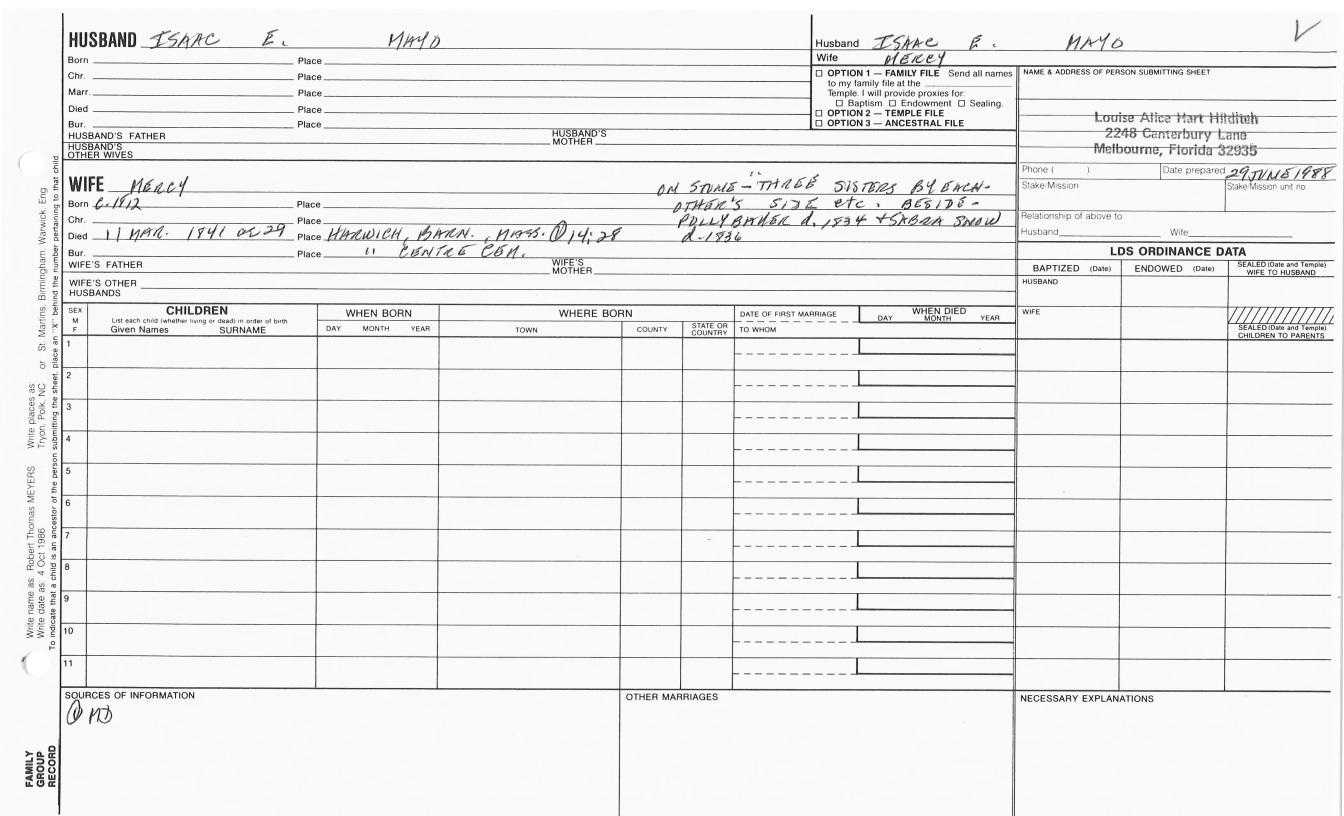 HUSBAND ISAAC E. MAYO
Born Place
Chr. Place
Marr. Place
Died Place
Bur. Place
HUSBAND'S FATHER HUSBAND'S MOTHER
HUSBAND'S OTHER WIVES
Husband ISAAC E. MAYO
Wife MERCY
☐ OPTION 1 — FAMILY FILE Send all names
to my family file at the
Temple. I will provide proxies for:
☐ Baptism ☐ Endowment ☐ Sealing.
☐ OPTION 2 — TEMPLE FILE
☐ OPTION 3 — ANCESTRAL FILE
NAME & ADDRESS OF PERSON SUBMITTING SHEET
Louise Alice Hart Hilditch
2248 Canterbury Lane
Melbourne, Florida 32935
Phone ( ) Date prepared 29 JUNE 1988
Stake/Mission Stake/Mission unit no.
Relationship of above to
Husband Wife
WIFE MERCY
Born C-1812 Place
Chr. Place
Died 11 MAR. 1841 ae 29 Place HARWICH, BARN., MASS. ① 14:28
Bur. Place " CENTRE CEM.
ON STONE - "THREE SISTERS BY EACH-
OTHER'S SIDE etc. BESIDE-
POLLY BAKER d. 1834 + SABRA SNOW
d-1836
WIFE'S FATHER WIFE'S MOTHER
WIFE'S OTHER HUSBANDS
LDS ORDINANCE DATA
BAPTIZED (Date) ENDOWED (Date) SEALED (Date and Temple) WIFE TO HUSBAND
HUSBAND
WIFE
SEALED (Date and Temple) CHILDREN TO PARENTS
SEX M F
CHILDREN
List each child (whether living or dead) in order of birth
Given Names SURNAME
WHEN BORN
DAY MONTH YEAR
WHERE BORN
TOWN COUNTY STATE OR COUNTRY
DATE OF FIRST MARRIAGE
TO WHOM
WHEN DIED
DAY MONTH YEAR
1
2
3
4
5
6
7
8
9
10
11
SOURCES OF INFORMATION
① MD
OTHER MARRIAGES
NECESSARY EXPLANATIONS
Write name as: Robert Thomas MEYERS Write places as: Tryon, Polk, NC or St. Martins, Birmingham, Warwick, Eng
Write date as: 4 Oct 1986
To indicate that a child is an ancestor of the person submitting the sheet, place an "X" behind the number pertaining to that child
FAMILY
GROUP
RECORD